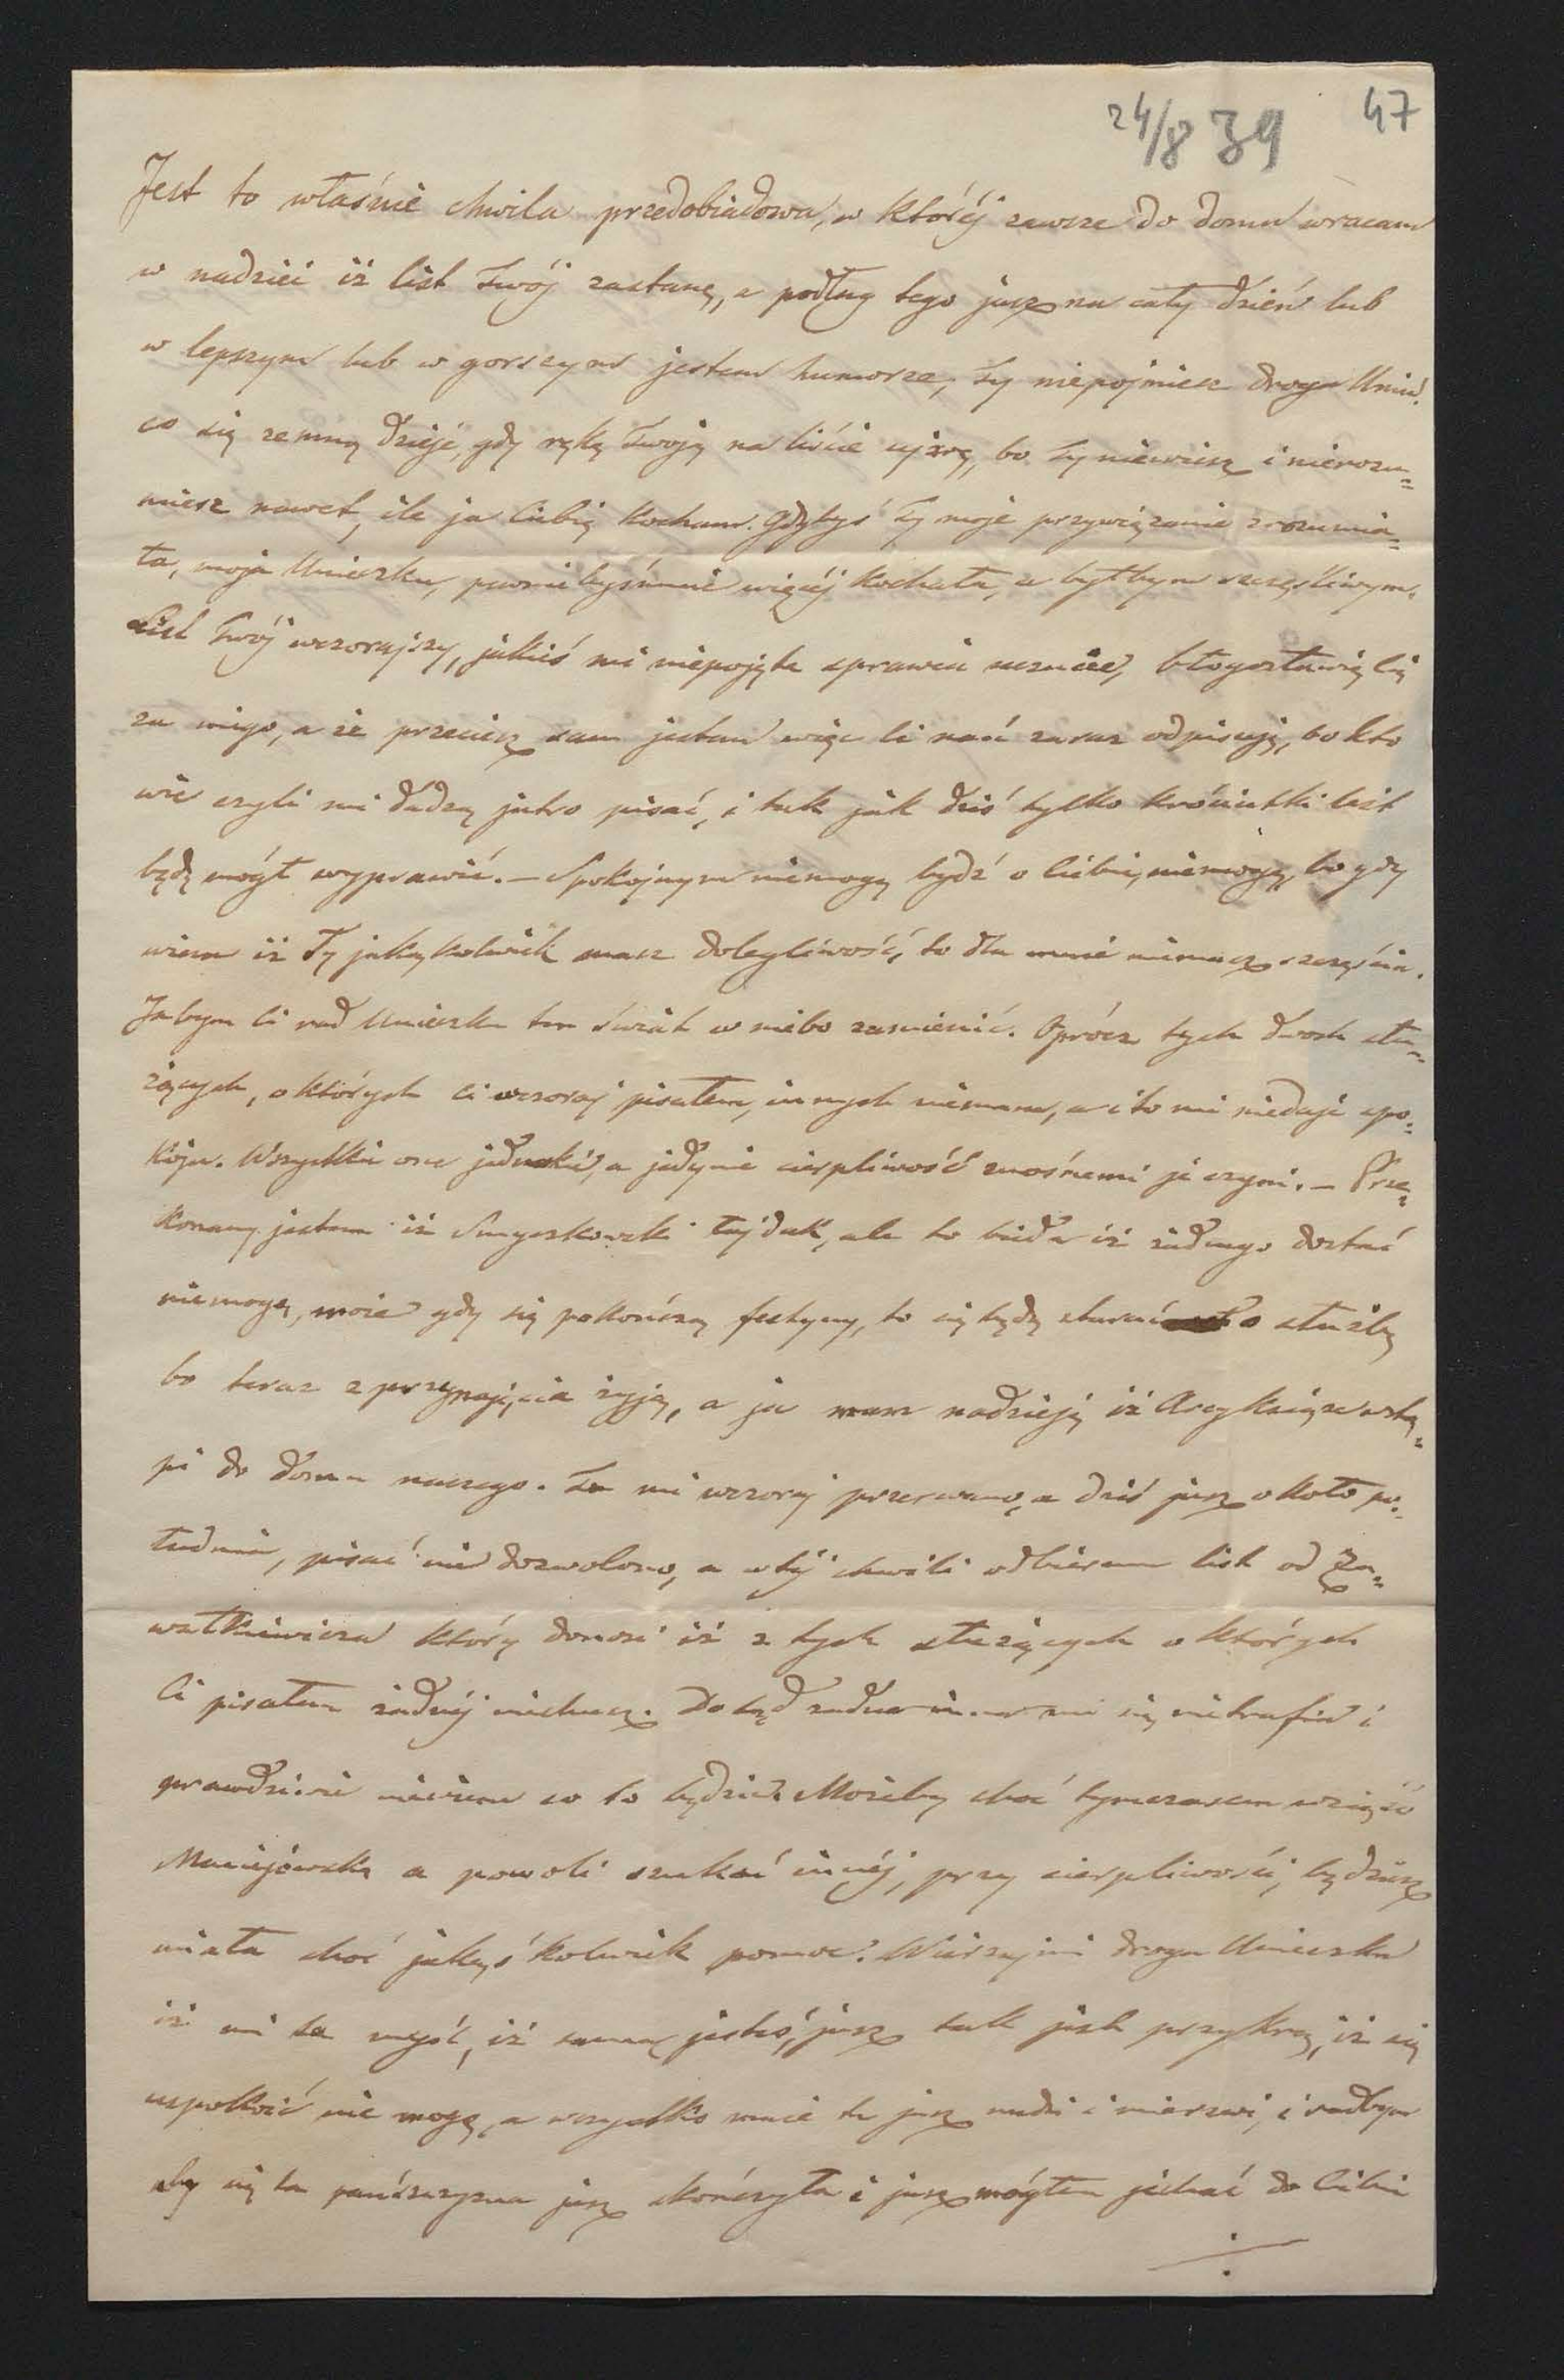 24/8 39 47
Jest to właśnie chwila przedobiadowa, w któréj zawsze do domu wracam
w nadziei iż list Twój zastanę, a podług tego jusz na cały dzień lub
w lepszym lub w gorszym jestem humorze, Ty niepojmiesz droga Uniu.
co się zemną dzieje, gdy rękę Twoję na liście ujzrę, bo Ty niewiesz i nierozu=
miesz nawet, ile ja Ciebię kocham. Gdybyś Ty moje przywiązanie zrozumia=
ła, moja Unieczku, pewnie byś mnie więcéj kochała, a byłbym szczęśliwym.
List Twój wczorajszy, jakieś mi niepojęte sprawia uczucie, błogosławię Cię
za niego, a że przecież sam jestem więc Ci nań zaraz odpisuję, bo kto
wie czyli mi dadzą jutro pisać, i tak jak dziś tylko króciutki list
będę mógł wyprawić. – Spokojnym niemogę bydź o Ciebie, niemogę, bo gdy
wiem iż Ty jakąkolwiek masz dolegliwość, to dla mnie niemasz szczęścia.
Jabym Ci rad Unieczku ten świat w niebo zamienić. Oprócz tych dwoch słu=
żących, o których Ci wczoraj pisałem, innych niemam, a i to mi niedaje spo=
koju. Wszystkie one jednakie, a jedynie cierpliwość znośnemi je czyni. – Prze=
konany jestem iż Smyczkowski łajdak, ale to bieda iż żadnego dostać
niemogę, może gdy się pokończą festyny, to się będę starać o służbę
bo teraz z przynajęcia żyję, a ja mam nadzieję iż Arcyksiąże wstą=
pi do domu naszego. Tu mi wczoraj przerwano, a dziś jusz około po=
łudnia, pisać nie dozwolono, a w téj chwili odbieram list od Za=
który donosi iż z tych służących o których
Ci pisałem żadnéj niechcesz. Dotąd żadna inna mi się nietrafia i
prawdziwie niewiem co to będzie. Możeby choć tymczasem wziąść
Maciejowską a powoli szukać innéj, przy cierpliwości, będziesz
miała choć jakąśkolwiek pomoc. Wierzaj mi droga Unieczku
iż mi ta myśl, iż sama jesteś, jusz tak jest przykrą, iż się
uspokoić nie mogę, a wszystko mnie tu jusz nudzi i mierzi, i radbym
aby się ta pańszczyzna jusz skończyła i jusz mógłem jechać do Ciebie